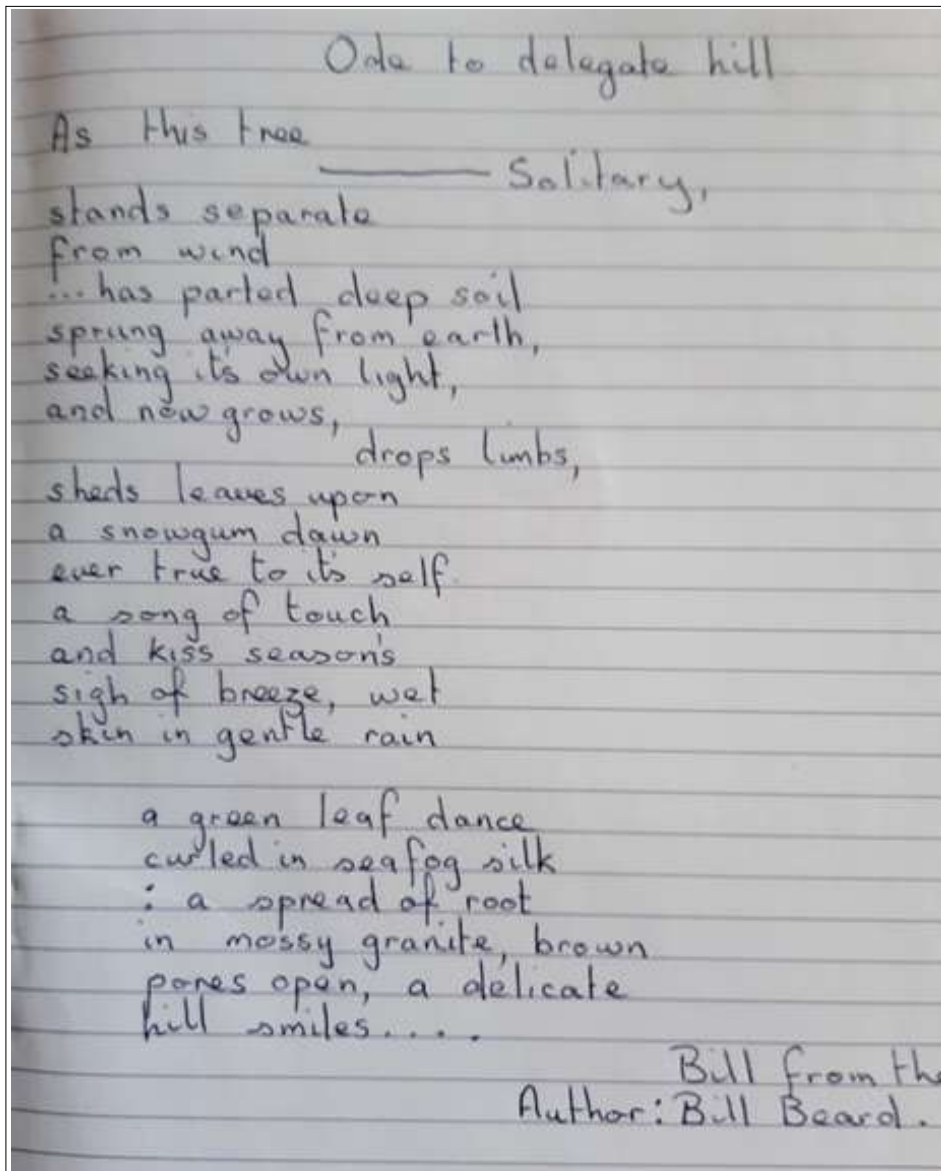 Ode to delegate hill
As this tree
——— Solitary,
stands separate
from wind
...has parted deep soil
sprung away from earth,
seeking it's own light,
and now grows,
drops limbs,
sheds leaves upon
a snowgum dawn
ever true to it's self.
a song of touch
and kiss season's
sigh of breeze, wet
skin in gentle rain
a green leaf dance
curled in seafog silk
: a spread of root
in mossy granite, brown
pores open, a delicate
hill smiles....
Bill from the
Author: Bill Beard.